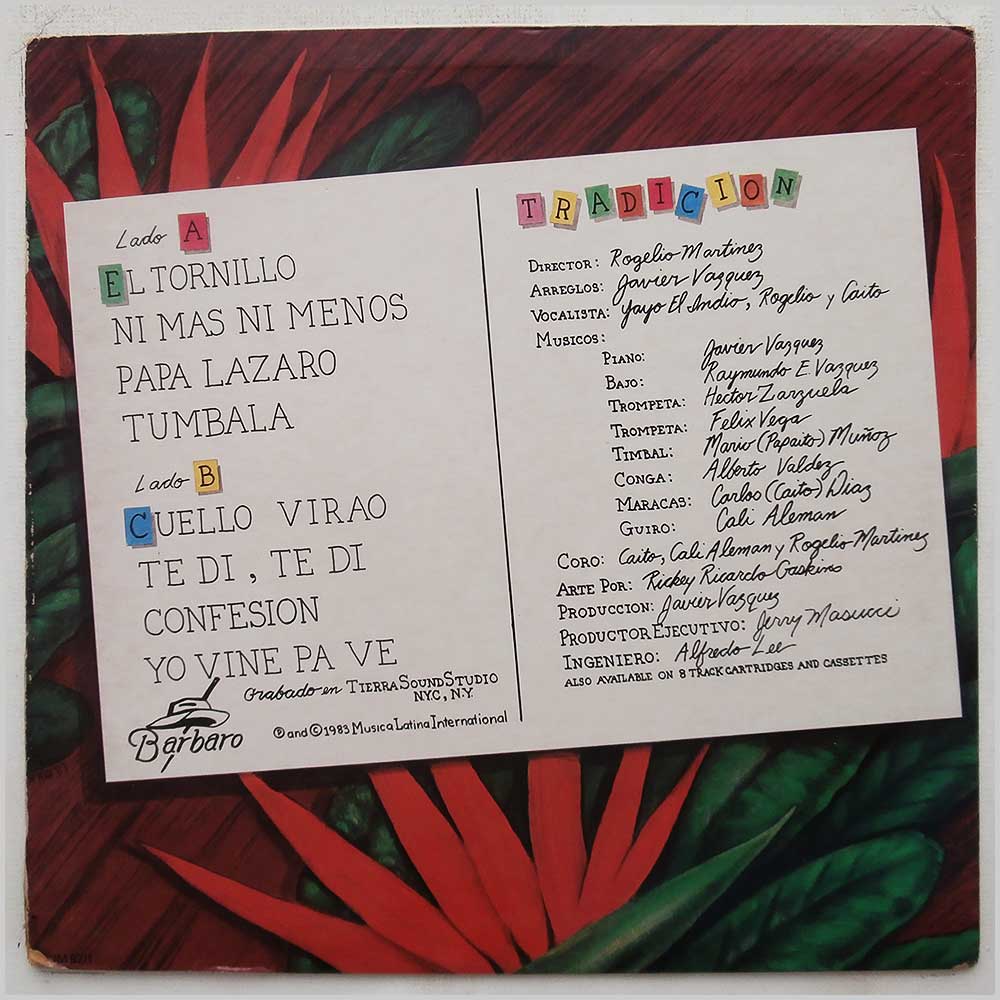 Lado A
EL TORNILLO
NI MAS NI MENOS
PAPA LAZARO
TUMBALA
Lado B
CUELLO VIRAO
TE DI, TE DI
CONFESION
YO VINE PA VE
Grabado en TIERRA SOUND STUDIO
N.Y.C, N.Y.
Bárbaro
Ⓟ and © 1983 Musica Latina International
TRADICION
DIRECTOR: Rogelio Martinez
ARREGLOS: Javier Vazquez
VOCALISTA: Yayo El Indio, Rogelio y Caito
MUSICOS:
PIANO: Javier Vazquez
BAJO: Raymundo E. Vazquez
TROMPETA: Hector Zarzuela
TROMPETA: Felix Vega
TIMBAL: Mario (Papaito) Muñoz
CONGA: Alberto Valdez
MARACAS: Carlos (Caito) Diaz
GUIRO: Cali Aleman
CORO: Caito, Cali Aleman y Rogelio Martinez
ARTE POR: Rickey Ricardo Gaskins
PRODUCCION: Javier Vazquez
PRODUCTOR EJECUTIVO: Jerry Masucci
INGENIERO: Alfredo Lee
ALSO AVAILABLE ON 8 TRACK CARTRIDGES AND CASSETTES